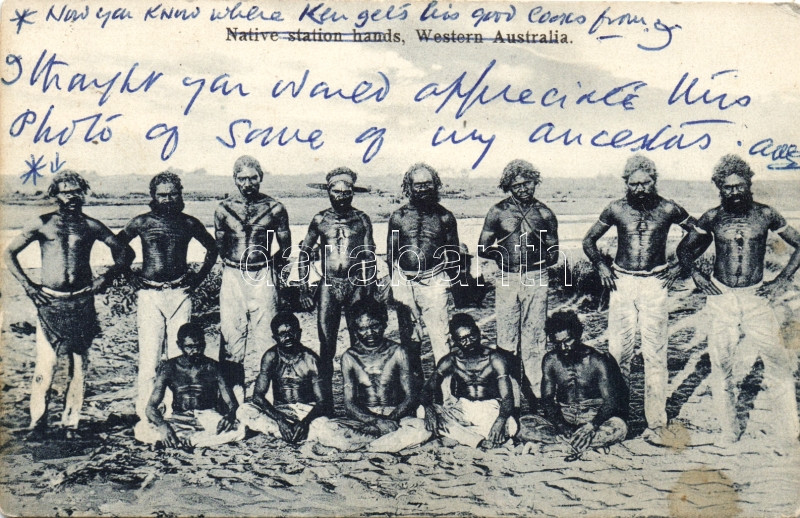 * Now you know where Ken gets his good looks from
Native station hands, Western Australia.
I thought you would appreciate this
Photo of some of my ancestors.
*↓
darabanth